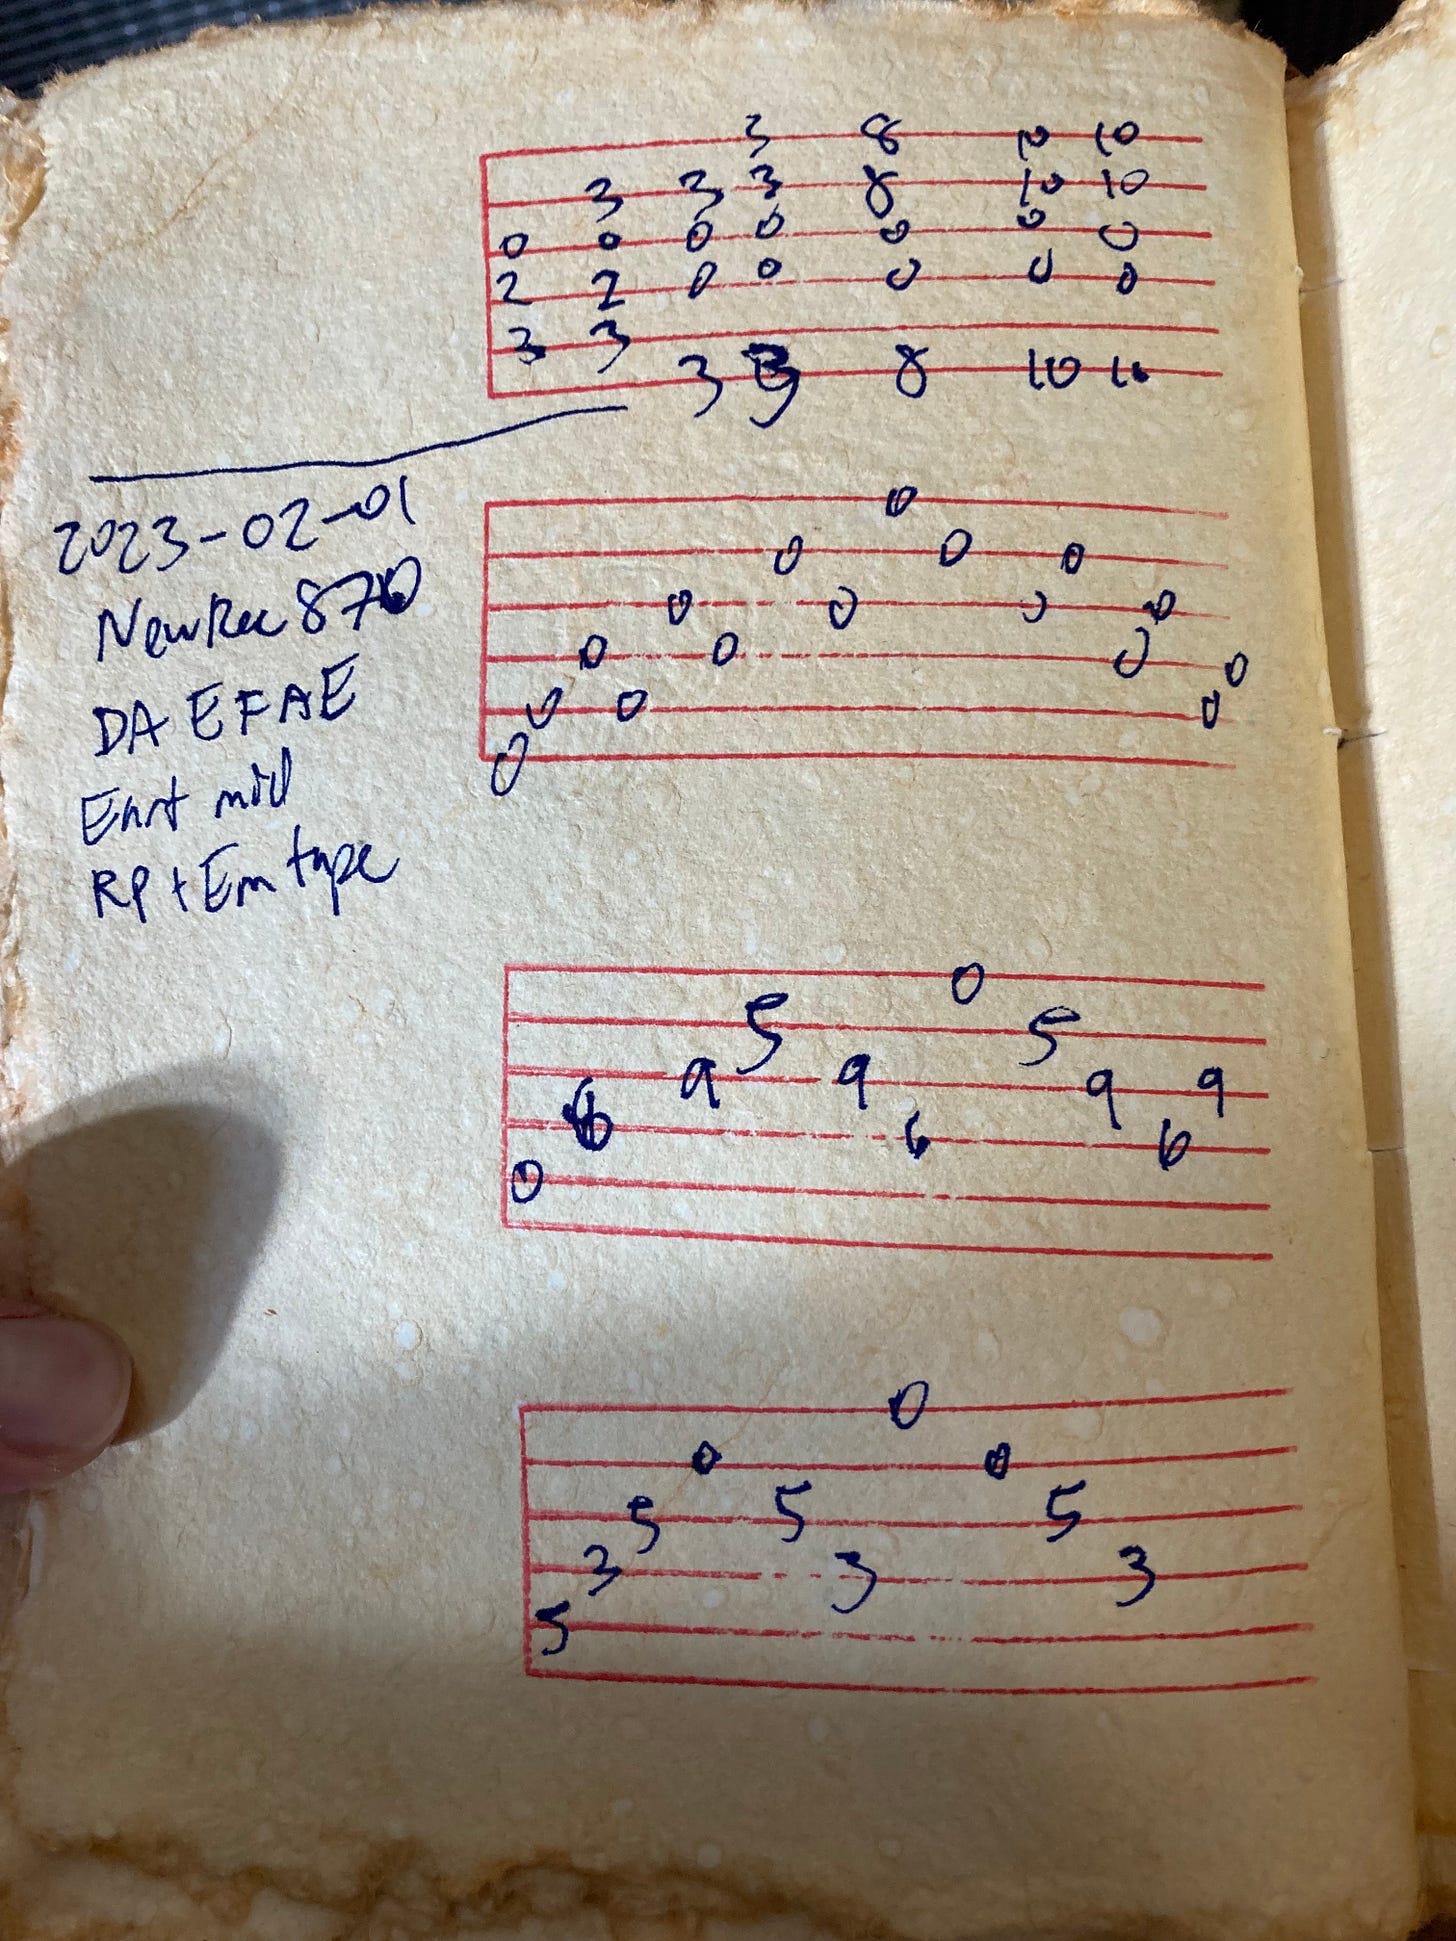 3 8 10 10
3 3 3 8 10 10
0 0 0 0 0 0 0
2 2 0 0 0 0 0
3 3
3 3 8 10 10
2023-02-01
NewRec 870
DA EFAE
RP + Em tape
0
0 0 0
0 0 0 0
0 0 0 0
0 0 0
0
0
5 5
9 9 9 9
6 6 6
0
0
0 0
5 5 5
3 3 3
5